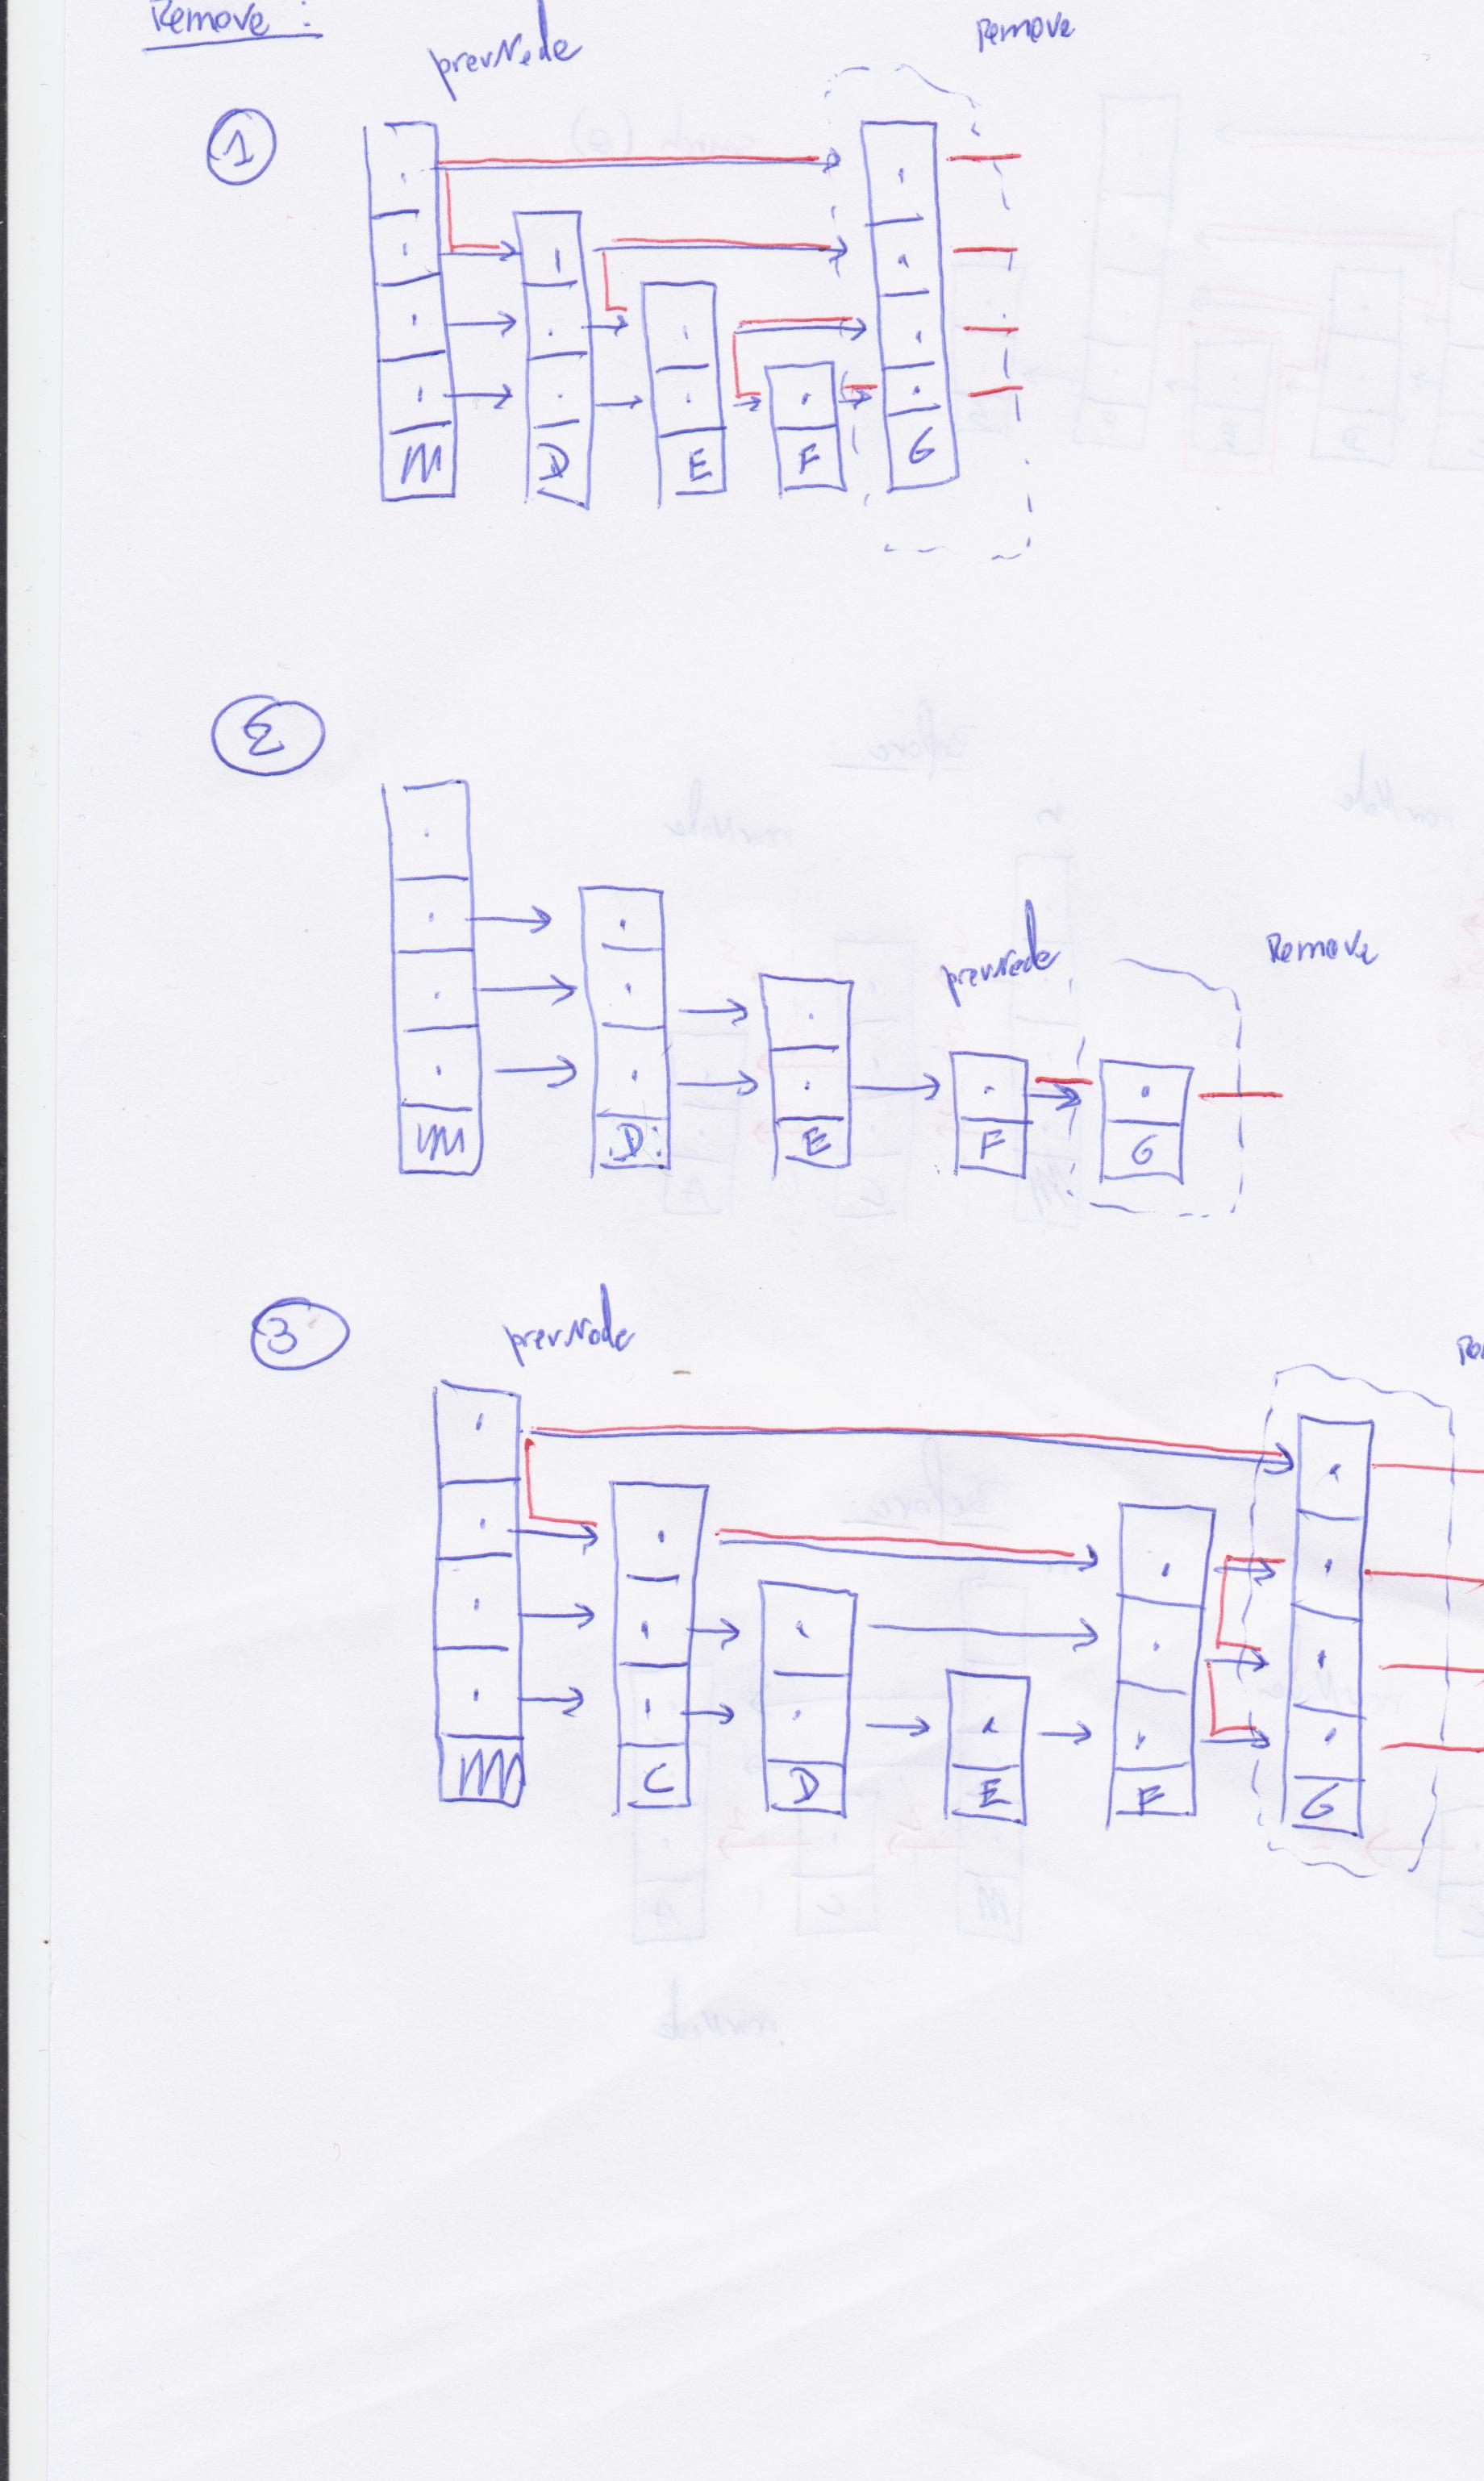 Remove :
prevNode Remove
1
M D E F G
2
prevNode Remove
M D E F G
3
prevNode
M C D E F G